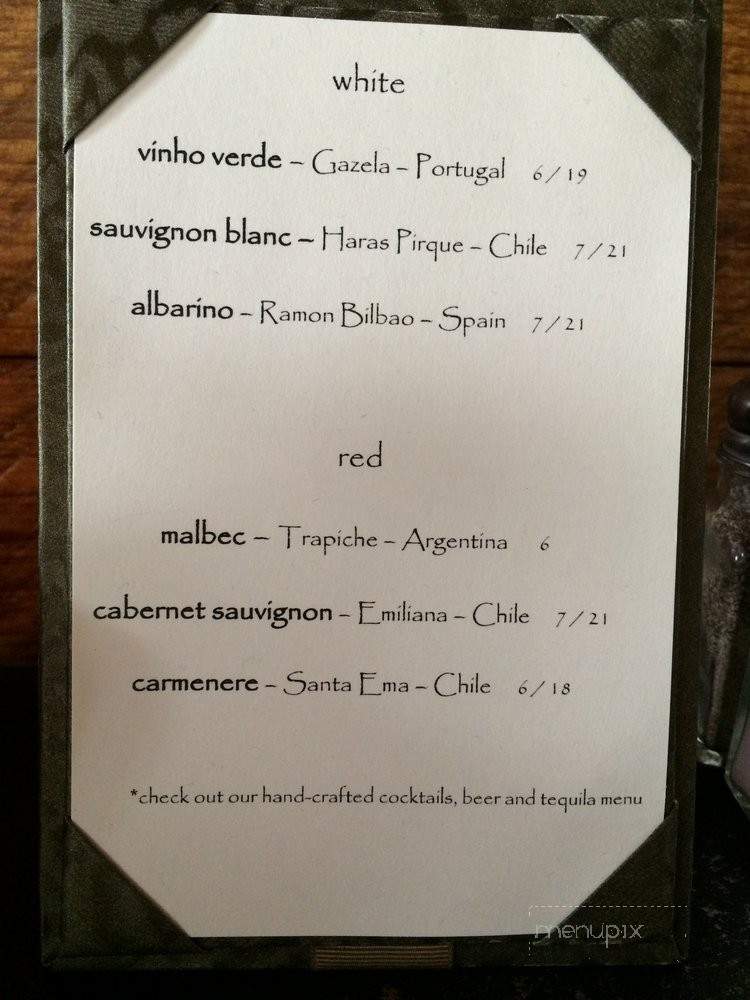 white
vinho verde – Gazela – Portugal 6/19
sauvignon blanc – Haras Pirque – Chile 7/21
albarino – Ramon Bilbao – Spain 7/21
red
malbec – Trapiche – Argentina 6
cabernet sauvignon – Emiliana – Chile 7/21
carmenere – Santa Ema – Chile 6/18
*check out our hand-crafted cocktails, beer and tequila menu
menupix